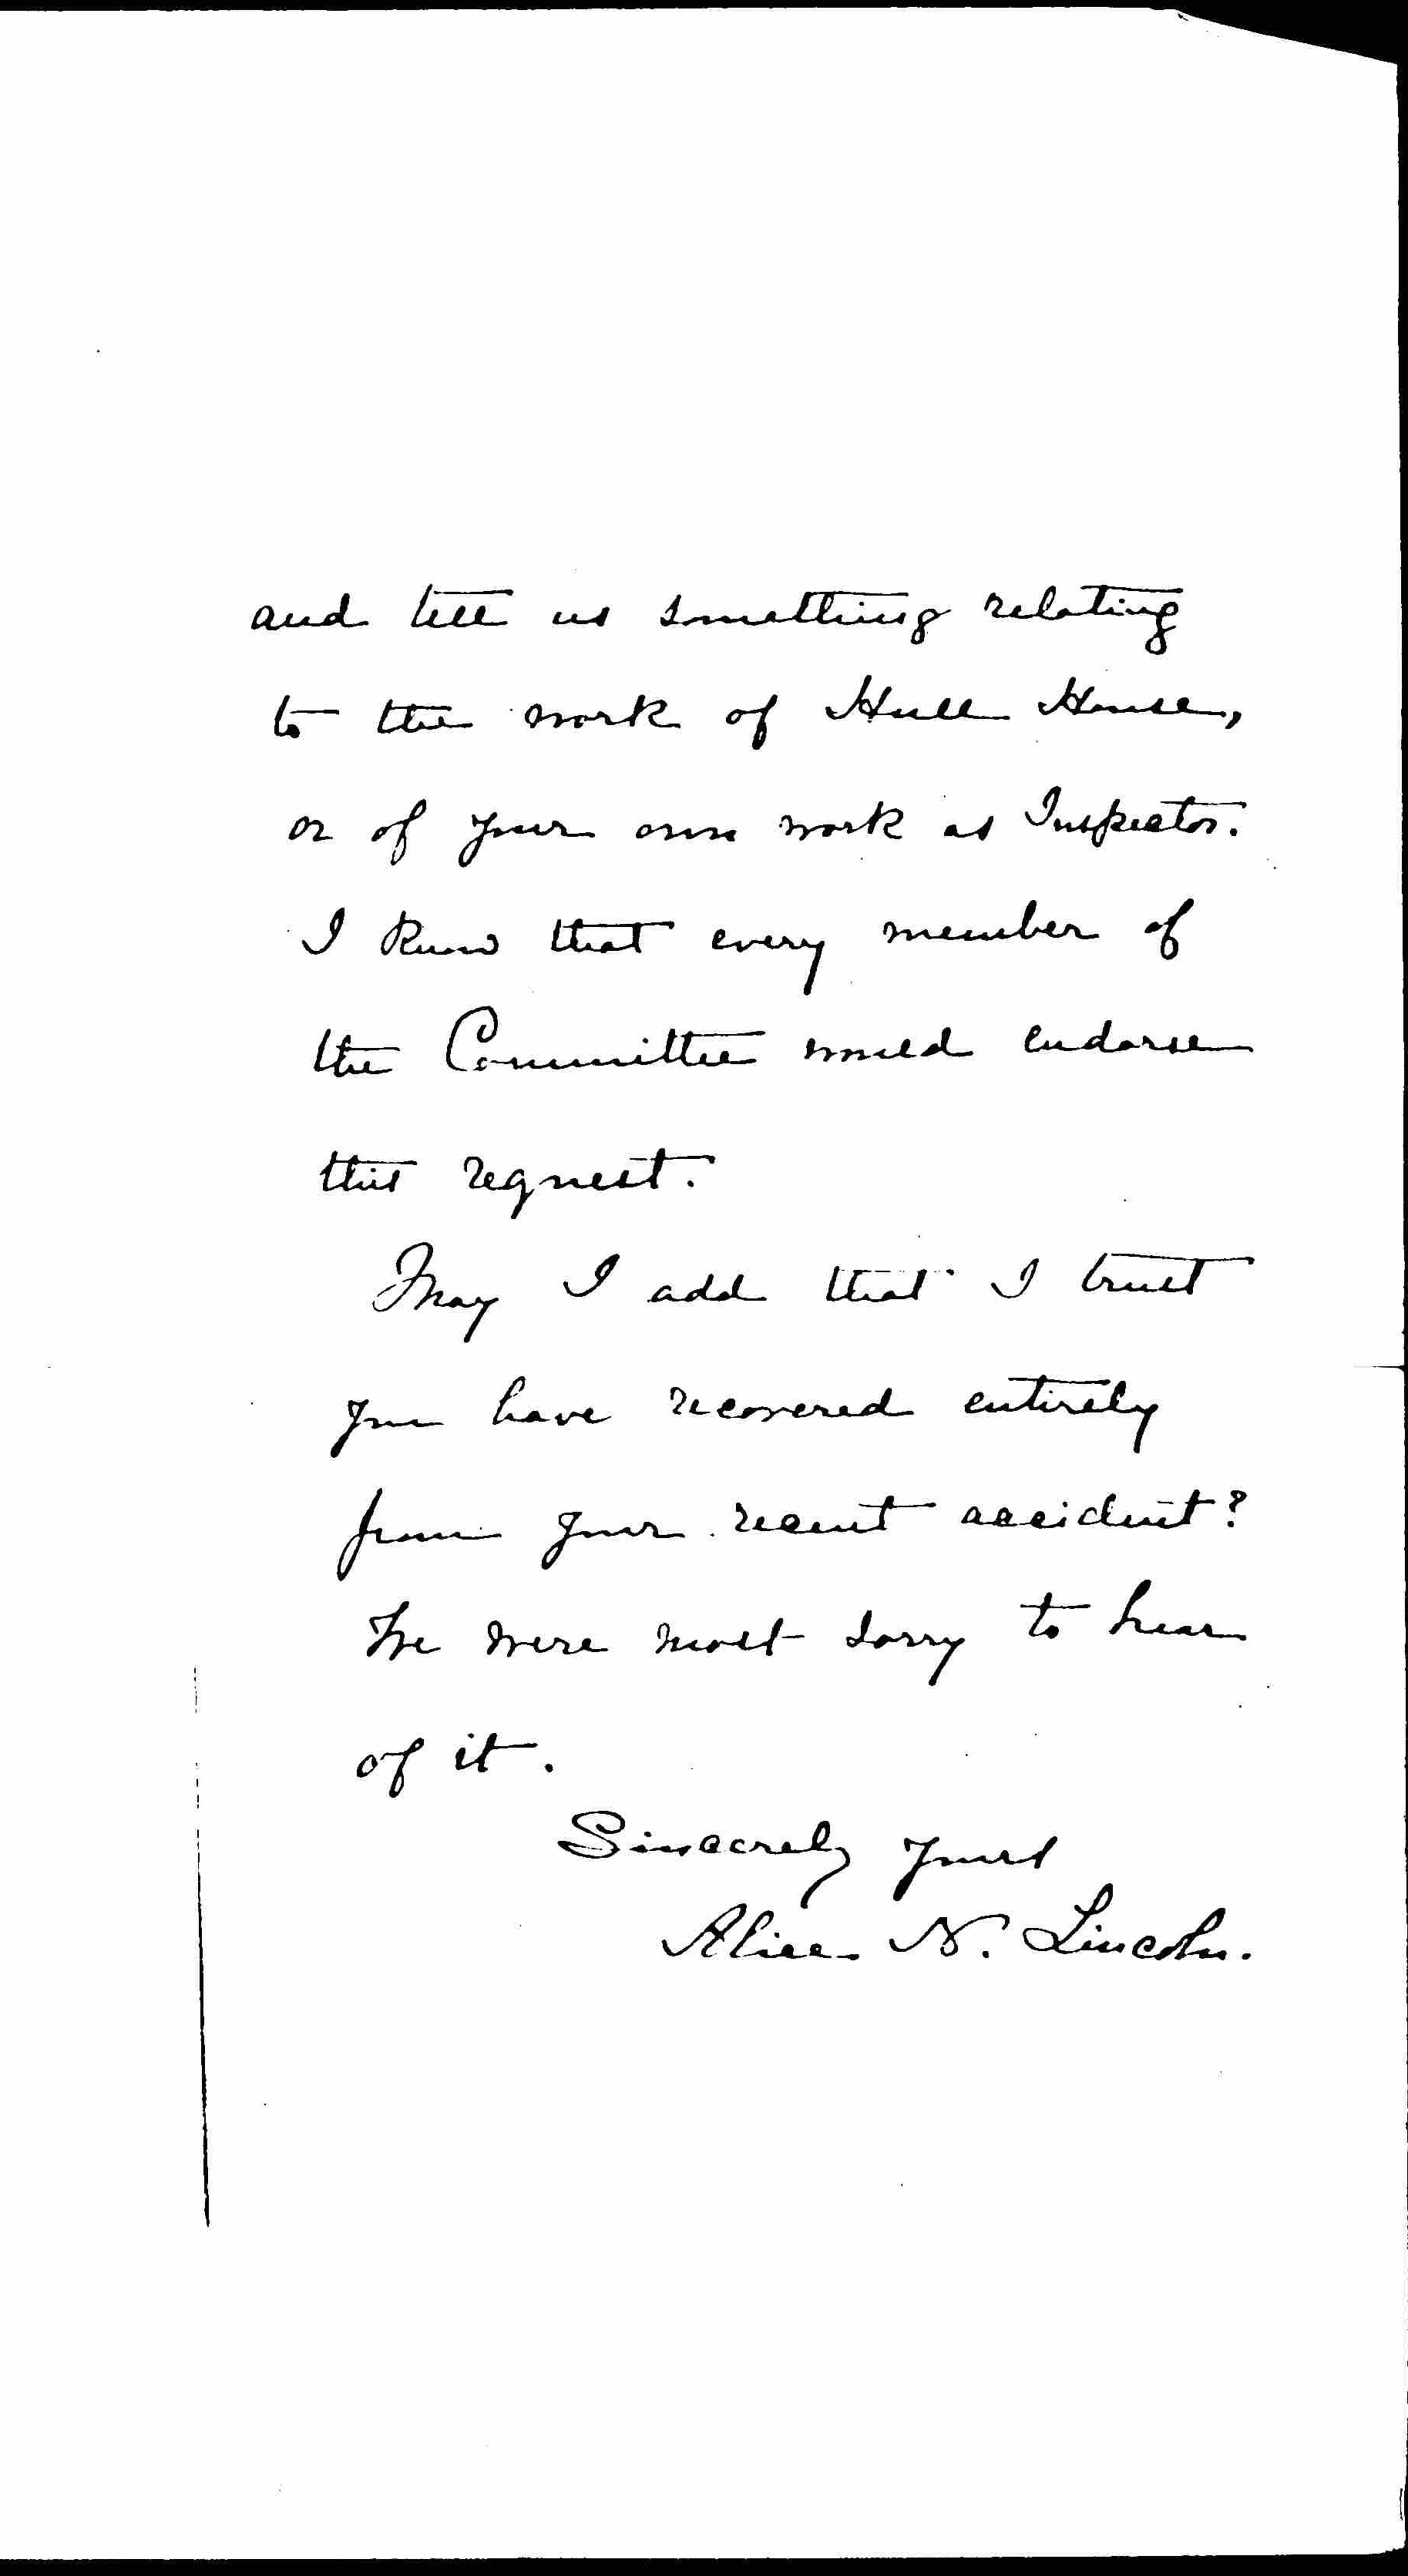 and tell us something relating
to the work of Hull House,
or of your own work as Inspector.
I know that every member of
the Committee would endorse
this request.
May I add that I trust
you have recovered entirely
from your recent accident?
We were most sorry to hear
of it.
Sincerely yours
Alice N. Lincoln.